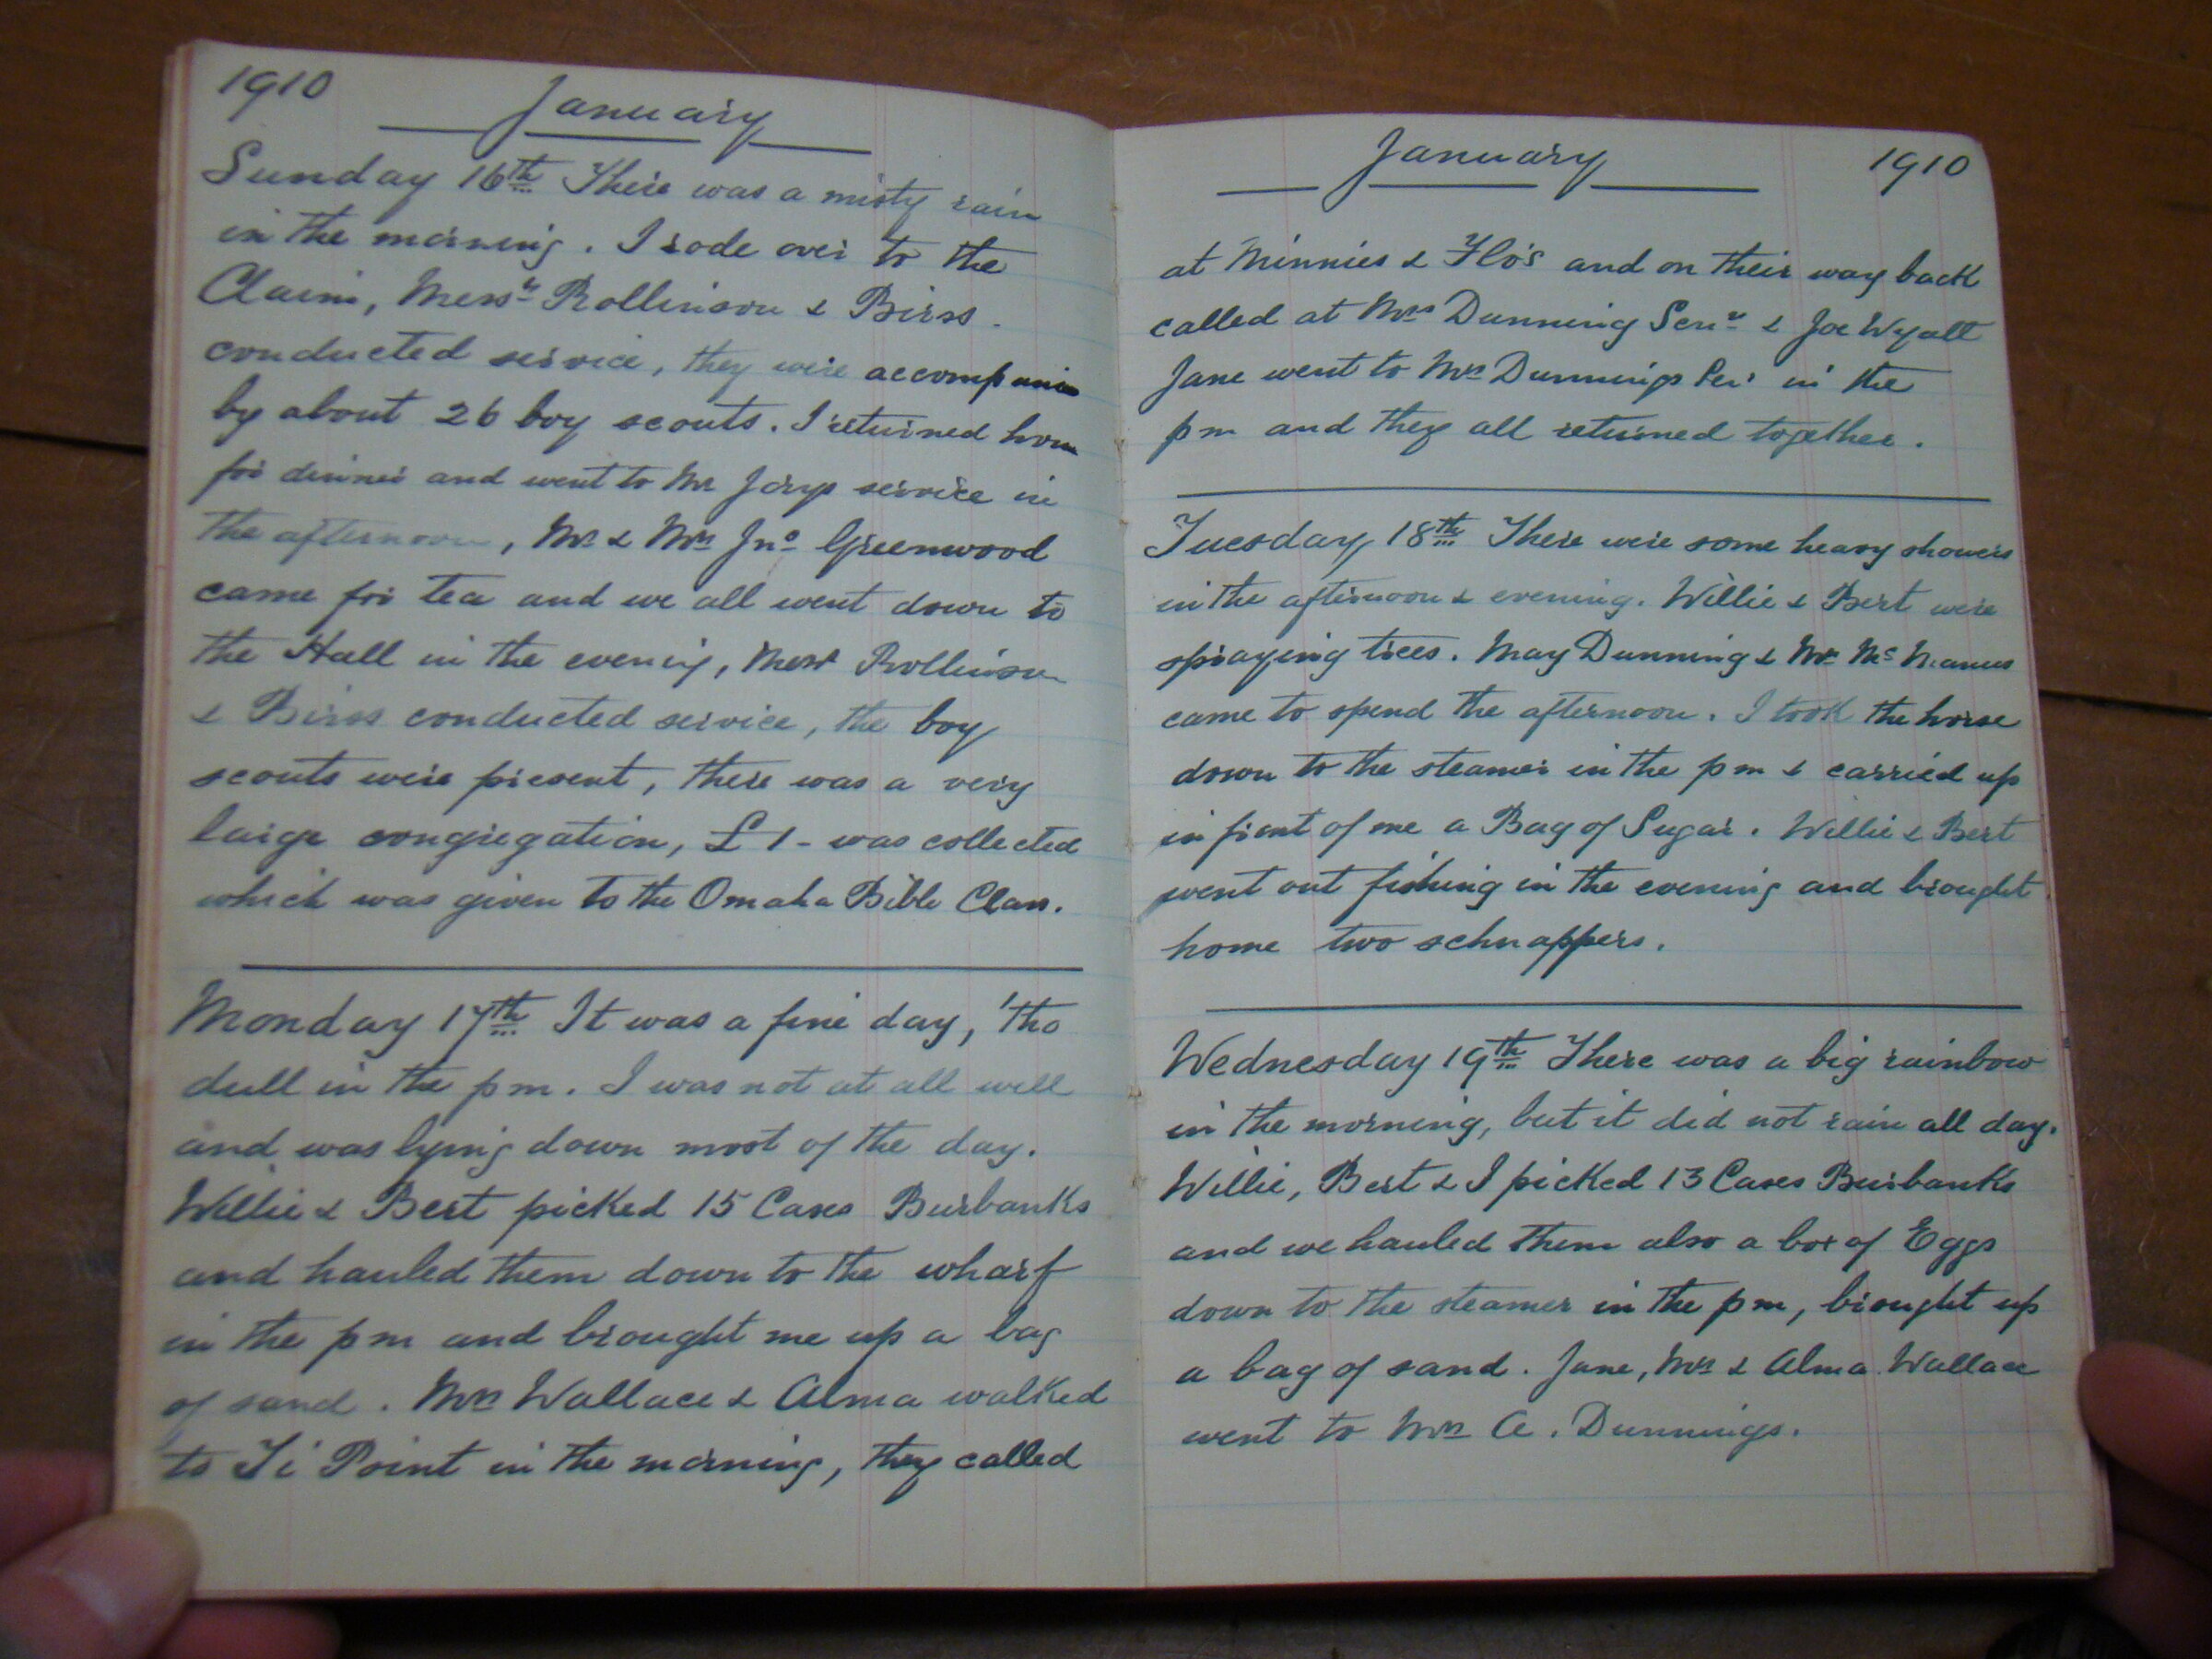 1910
January
Sunday 16th There was a misty rain
in the morning. I rode over to the
Claim, Messrs Rollinson & Birss.
conducted service, they were accompanied
by about 26 boy scouts. I returned home
for dinner and went to Mr Jorys service in
the afternoon, Mr & Mrs Jno Greenwood
came for tea and we all went down to
the Hall in the evening, Messrs Rollinson
& Birss conducted service, the boy
scouts were present, there was a very
large congregation, £1- was collected
which was given to the Omaha Bible Class.
Monday 17th It was a fine day, 'tho
dull in the pm. I was not at all well
and was lying down most of the day.
Willie & Bert picked 15 Cases Burbanks
and hauled them down to the wharf
in the pm and brought me up a bag
of sand. Mrs Wallace & Alma walked
to Ti Point in the morning, they called
January 1910
at Minnies & Flo's and on their way back
called at Mrs Dunning Senr & Joe Wyatt
Jane went to Mrs Dunnings Senr in the
pm and they all returned together.
Tuesday 18th There were some heavy showers
in the afternoon & evening. Willie & Bert were
spraying trees. May Dunning & Mrs McManus
came to spend the afternoon. I took the horse
down to the steamer in the pm & carried up
in front of me a Bag of Sugar. Willie & Bert
went out fishing in the evening and brought
home two schnappers.
Wednesday 19th There was a big rainbow
in the morning, but it did not rain all day.
Willie, Bert & I picked 13 Cases Burbanks
and we hauled them also a box of Eggs
down to the steamer in the pm, brought up
a bag of sand. Jane, Mrs & Alma Wallace
went to Mrs A. Dunnings.